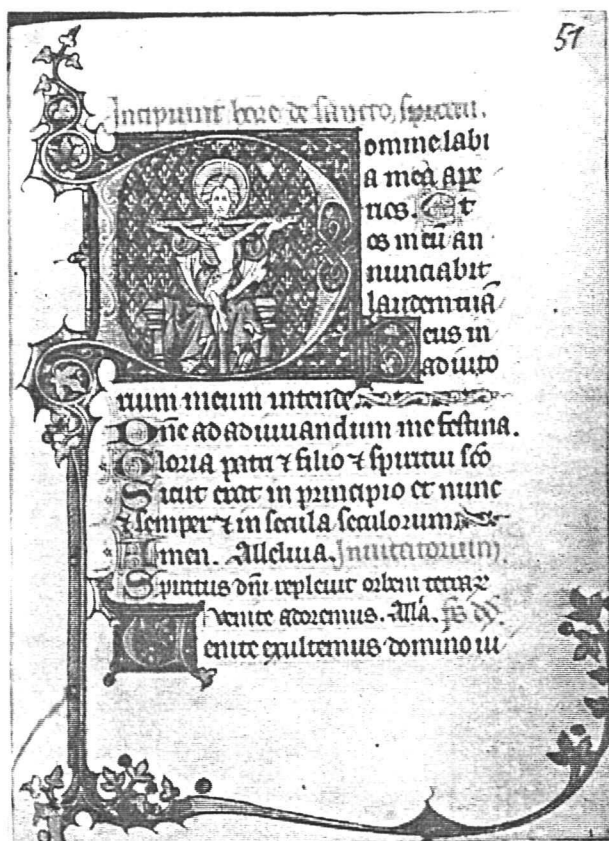 51
Incipiunt hore de sancto spiritu.
Domine labi
a mea ape
ries. Et
os meū an
nunciabit
laudem tuā
Deus in
adiuto
rium meum intende.
Dn̄e ad adiuuandum me festina.
Gloria patri ⁊ filio ⁊ spiritui sc̄o
Sicut erat in principio et nunc
⁊ semper ⁊ in secula seculorum
Amen. Alleluia. Inuitatorium
Spiritus dn̄i repleuit orbem terrarꝝ
venite adoremus. Alla. ps
Venite exultemus domino iu